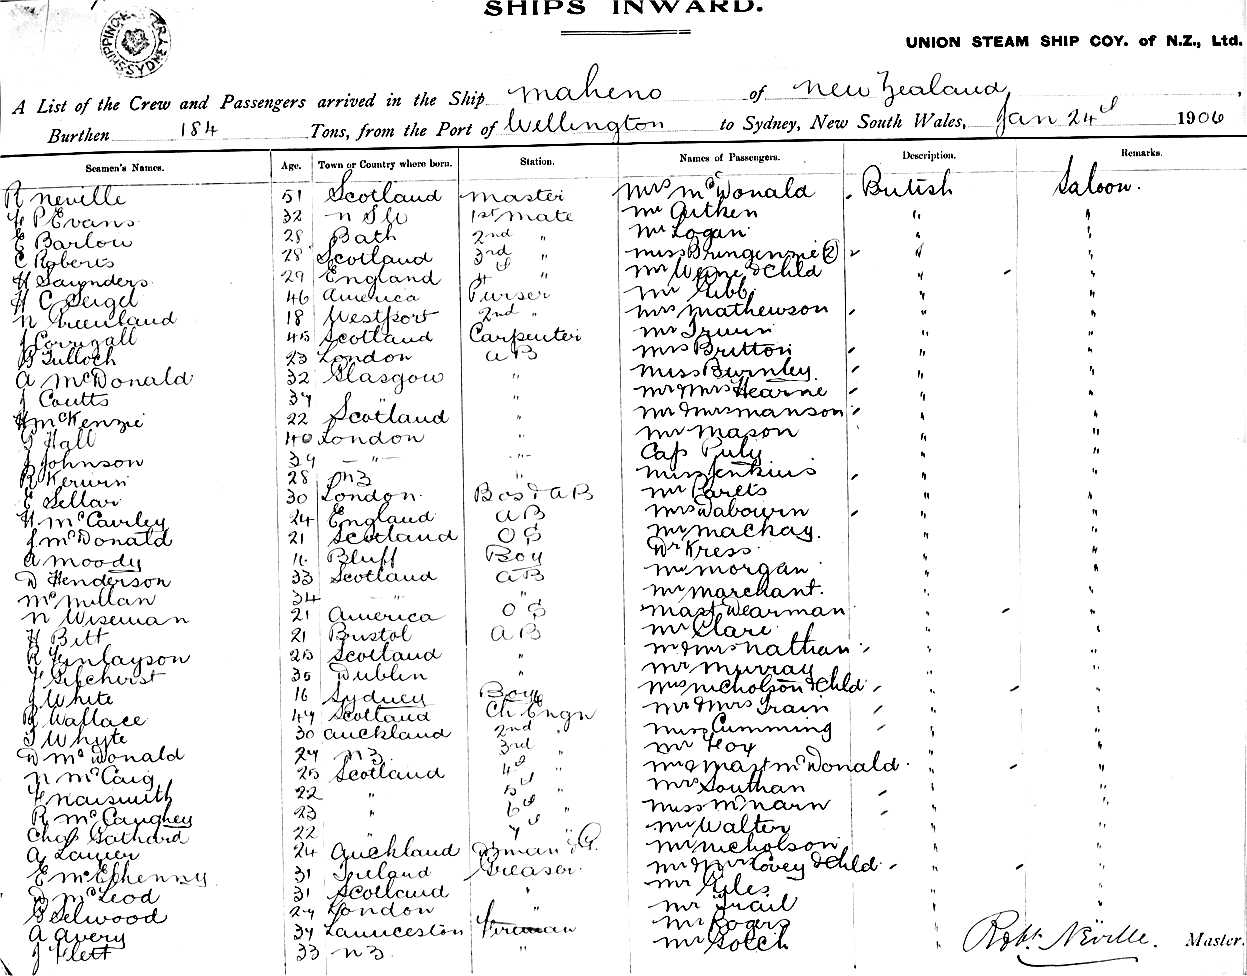 SHIPS INWARD.
SHIPPING SYDNEY
UNION STEAM SHIP COY. of N.Z., Ltd.
A List of the Crew and Passengers arrived in the Ship Maheno of New Zealand,
Burthen 184 Tons, from the Port of Wellington to Sydney, New South Wales, Jan 24th 1906
Seamen's Names. Age. Town or Country where born. Station. Names of Passengers. Description. Remarks.
R Neville 51 Scotland Master Mrs McDonald British Saloon.
P Evans 32 N S W 1st Mate Mr Aitken " "
E Barlow 28 Bath 2nd " Mr Logan " "
C Roberts 28 Scotland 3rd " Miss " "
H Saunders 29 England 4th " Mr & Chld " "
H C Seigel 46 America Purser Mr Gibb " "
N Greenland 18 Westport 2nd " Mrs Mathewson " "
J Corrigall 45 Scotland Carpenter Mr Irwin " "
B Tulloch 23 London A B Mrs Britton " "
A McDonald 32 Glasgow " Miss Burnley " "
J Coutts 34 " " Mr & Mrs Hearne " "
H McKenzie 22 Scotland " Mr & Mrs Manson " "
G Hall 40 London " Mr Mason " "
J Johnson 39 " " Cap " "
R Kerwin 28 NZ " Miss Jenkins " "
E Sellar 30 London Bos & A B Mr " "
H McCaurley 24 England A B Mrs " "
J McDonald 21 Scotland O S Mr Mackay " "
A Moody 16 Bluff Boy Dr Kress " "
D Henderson 33 Scotland A B Mr Morgan " "
McMillan 34 " " Mr Marchant " "
N Wiseman 21 America O S Mast Wearman " "
H Bitt 21 Bristol A B Mr Clare " "
R Finlayson 25 Scotland " Mr & Mrs Nathan " "
Gilchrist 35 Dublin " Mr Murray " "
J White 16 Sydney Boy Mrs Nicholson & Chld " "
R Wallace 47 Scotland Ch Engr Mr & Mrs Train " "
T Whyte 30 Auckland 2nd " Miss Cumming " "
D McDonald 27 NZ 3rd " Mr Fox " "
N McCaig 25 Scotland 4th " Mrs & Mast McDonald " "
Naismith 22 " 5th " Mrs Southan " "
R McCaughey 23 " 6th " Miss " "
Chas Gathard 22 " 7th " Mr Walter " "
A Lawer 24 Auckland Mr Nicholson " "
E McElhenny 31 Ireland Greaser Mr & Mrs Covey & Chld " "
D McLeod 31 Scotland " Mr Giles " "
G Selwood 27 London " Mr Trail " "
A Avery 34 Launceston Fireman Mr Rogers "
J Flett 33 NZ " Mr Gotch "
Robt. Neville. Master.